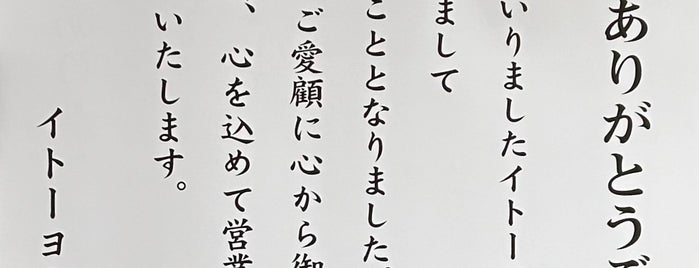 ありがとうご
いりましたイトー
まして
こととなりました。
ご愛顧に心から御
、心を込めて営業
いたします。
イトーヨ